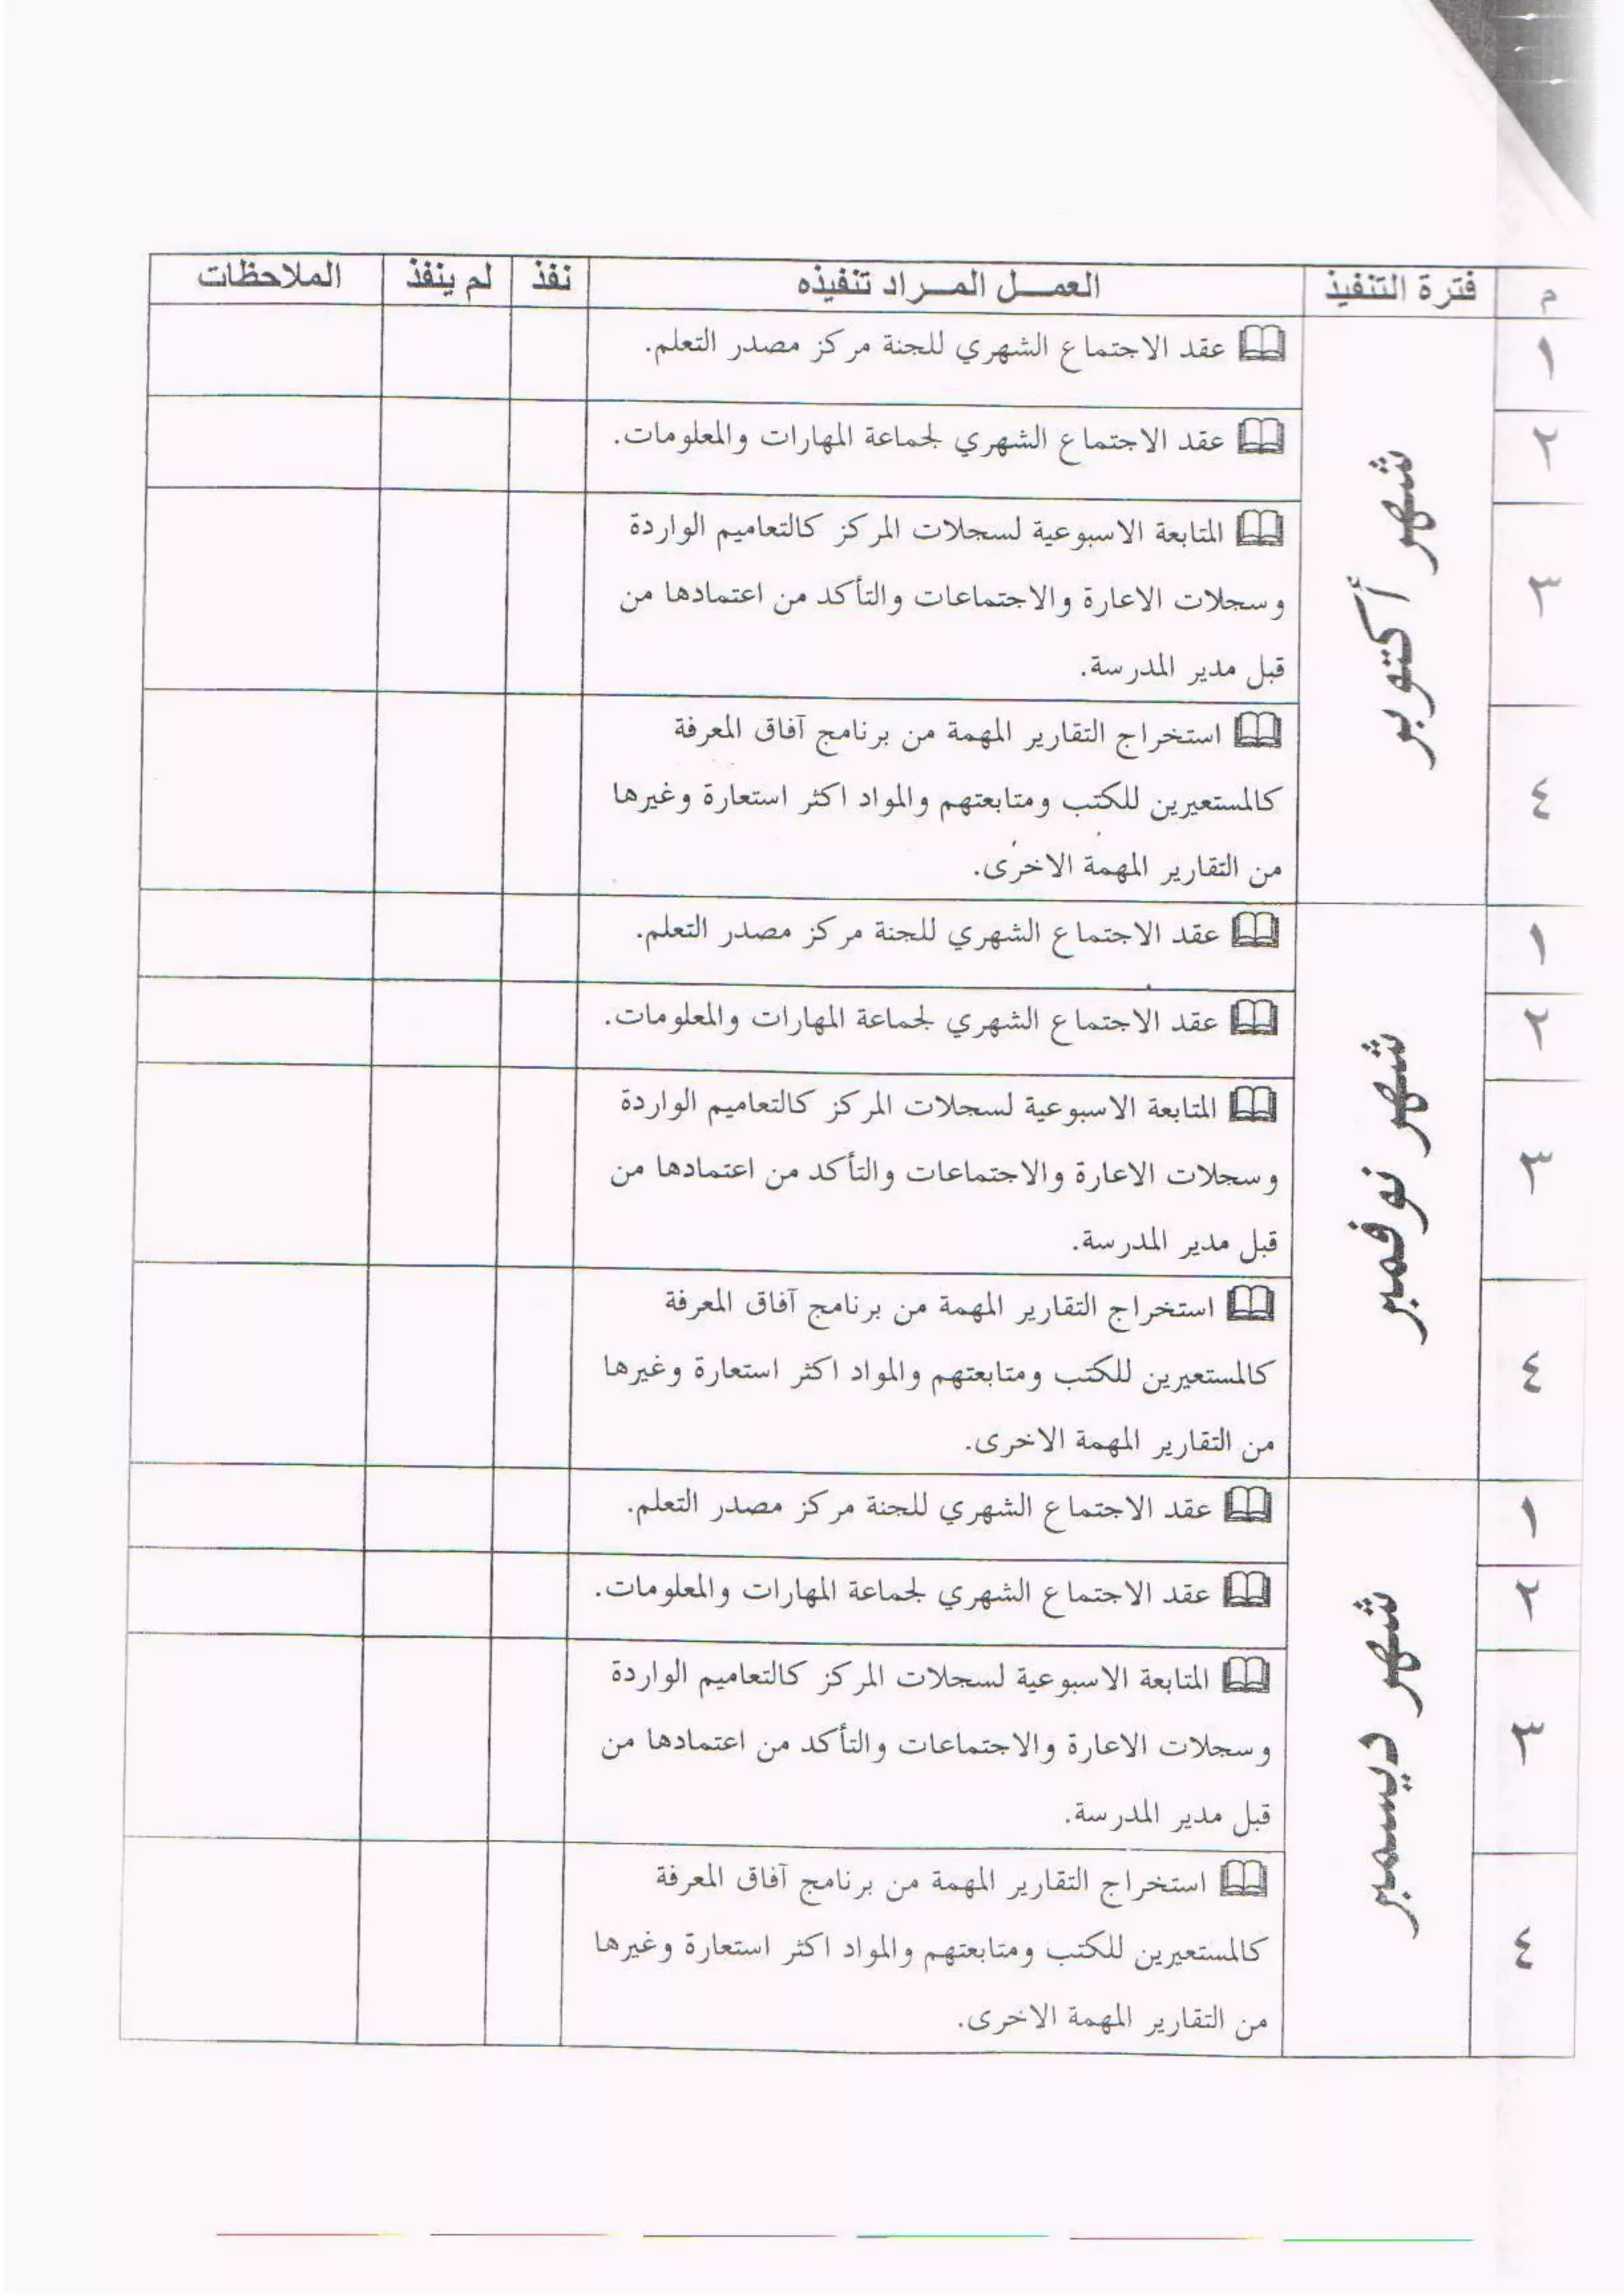 م فترة التنفيذ العمـــل المــراد تنفيذه نفذ لم ينفذ الملاحظات
شهر أكتوبر
١ عقد الاجتماع الشهري للجنة مركز مصدر التعلم.
٢ عقد الاجتماع الشهري لجماعة المهارات والمعلومات.
٣ المتابعة الاسبوعية لسجلات المركز كالتعاميم الواردة
وسجلات الاعارة والاجتماعات والتأكد من اعتمادها من
قبل مدير المدرسة.
٤ استخراج التقارير المهمة من برنامج آفاق المعرفة
كالمستعيرين للكتب ومتابعتهم والمواد اكثر استعارة وغيرها
من التقارير المهمة الاخرى.
شهر نوفمبر
١ عقد الاجتماع الشهري للجنة مركز مصدر التعلم.
٢ عقد الاجتماع الشهري لجماعة المهارات والمعلومات.
٣ المتابعة الاسبوعية لسجلات المركز كالتعاميم الواردة
وسجلات الاعارة والاجتماعات والتأكد من اعتمادها من
قبل مدير المدرسة.
٤ استخراج التقارير المهمة من برنامج آفاق المعرفة
كالمستعيرين للكتب ومتابعتهم والمواد اكثر استعارة وغيرها
من التقارير المهمة الاخرى.
شهر ديسمبر
١ عقد الاجتماع الشهري للجنة مركز مصدر التعلم.
٢ عقد الاجتماع الشهري لجماعة المهارات والمعلومات.
٣ المتابعة الاسبوعية لسجلات المركز كالتعاميم الواردة
وسجلات الاعارة والاجتماعات والتأكد من اعتمادها من
قبل مدير المدرسة.
٤ استخراج التقارير المهمة من برنامج آفاق المعرفة
كالمستعيرين للكتب ومتابعتهم والمواد اكثر استعارة وغيرها
من التقارير المهمة الاخرى.